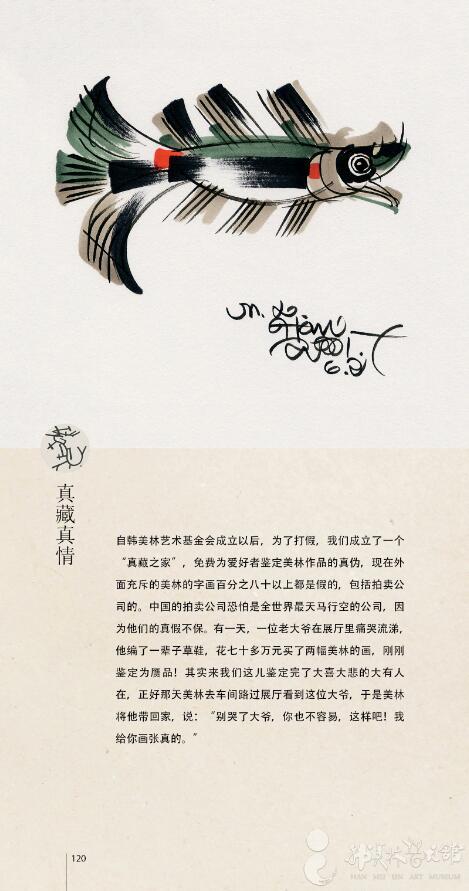 6.2
真藏真情
自韩美林艺术基金会成立以后，为了打假，我们成立了一个
“真藏之家”，免费为爱好者鉴定美林作品的真伪，现在外
面充斥的美林的字画百分之八十以上都是假的，包括拍卖公
司的。中国的拍卖公司恐怕是全世界最天马行空的公司，因
为他们的真假不保。有一天，一位老大爷在展厅里痛哭流涕，
他编了一辈子草鞋，花七十多万元买了两幅美林的画，刚刚
鉴定为赝品！其实来我们这儿鉴定完了大喜大悲的大有人
在，正好那天美林去车间路过展厅看到这位大爷，于是美林
将他带回家，说：“别哭了大爷，你也不容易，这样吧！我
给你画张真的。”
120
韩美林艺术馆
HAN MEI LIN ART MUSEUM